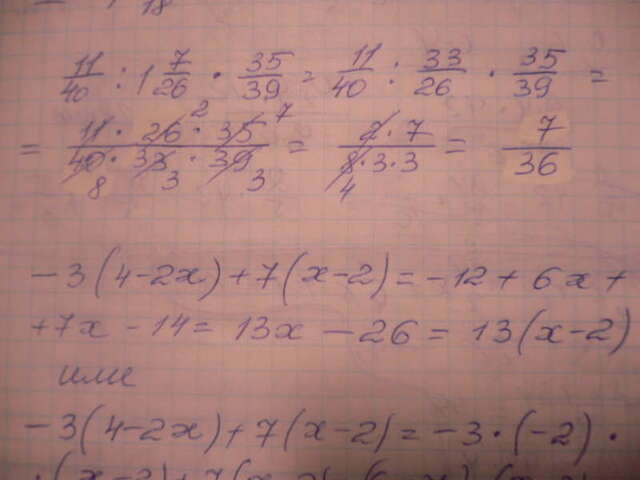 18
11/40 : 1 7/26 · 35/39 = 11/40 : 33/26 · 35/39 =
= 11 · 26 2 · 35 7 / 40 8 · 33 3 · 39 3 = 2 · 7 / 8 4 · 3 · 3 = 7/36
-3(4-2x)+7(x-2)=-12+6x+
+7x-14=13x-26=13(x-2)
или
-3(4-2x)+7(x-2)=-3·(-2)·